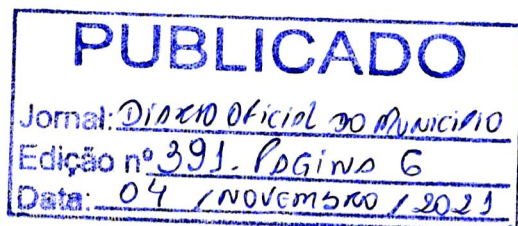 PUBLICADO
Jornal: DIÁRIO OFICIAL DO MUNICÍPIO
Edição nº 391. PÁGINA 6
Data: 04 / NOVEMBRO / 2021